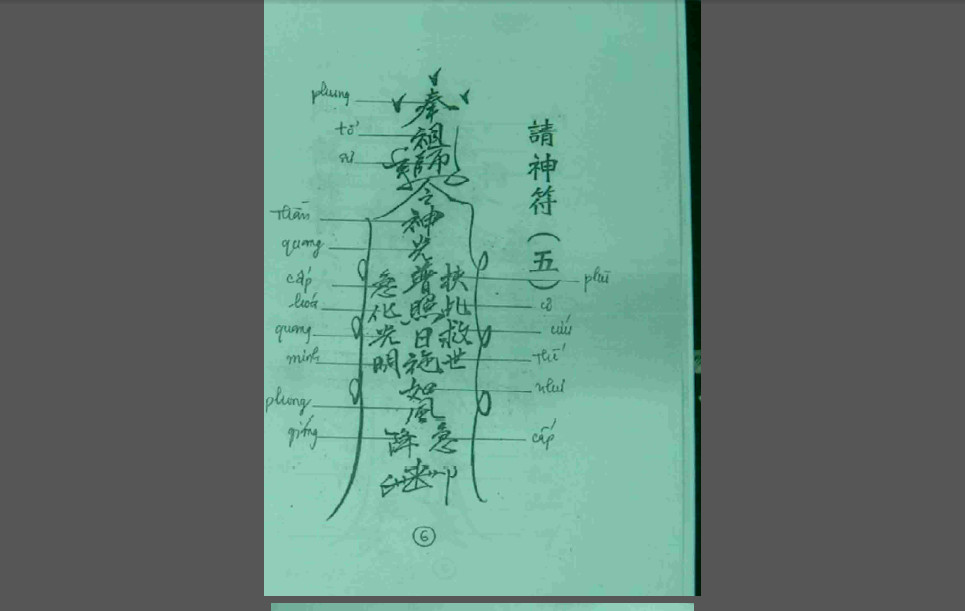 請神符（五）
phụng
奉
tổ
祖
sư
師
令
Thần
神
quang
光
cấp
急
普
扶
phù
hoá
化
照
此
quang
光
日
救
cứu
minh
明
施
世
Thế
如
như
phong
風
giáng
降
急
cấp
6